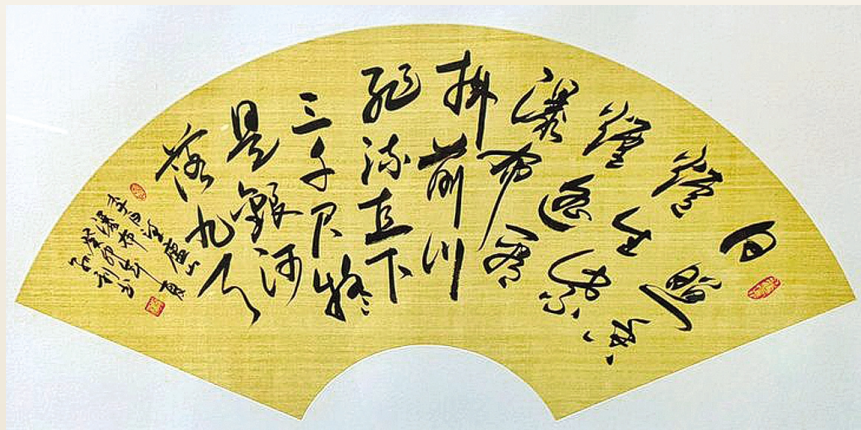 日照香
爐生紫
煙遙看
瀑布
掛前川
飛流直下
三千尺疑
是銀河
落九天
李白望廬山
瀑布
癸卯年夏